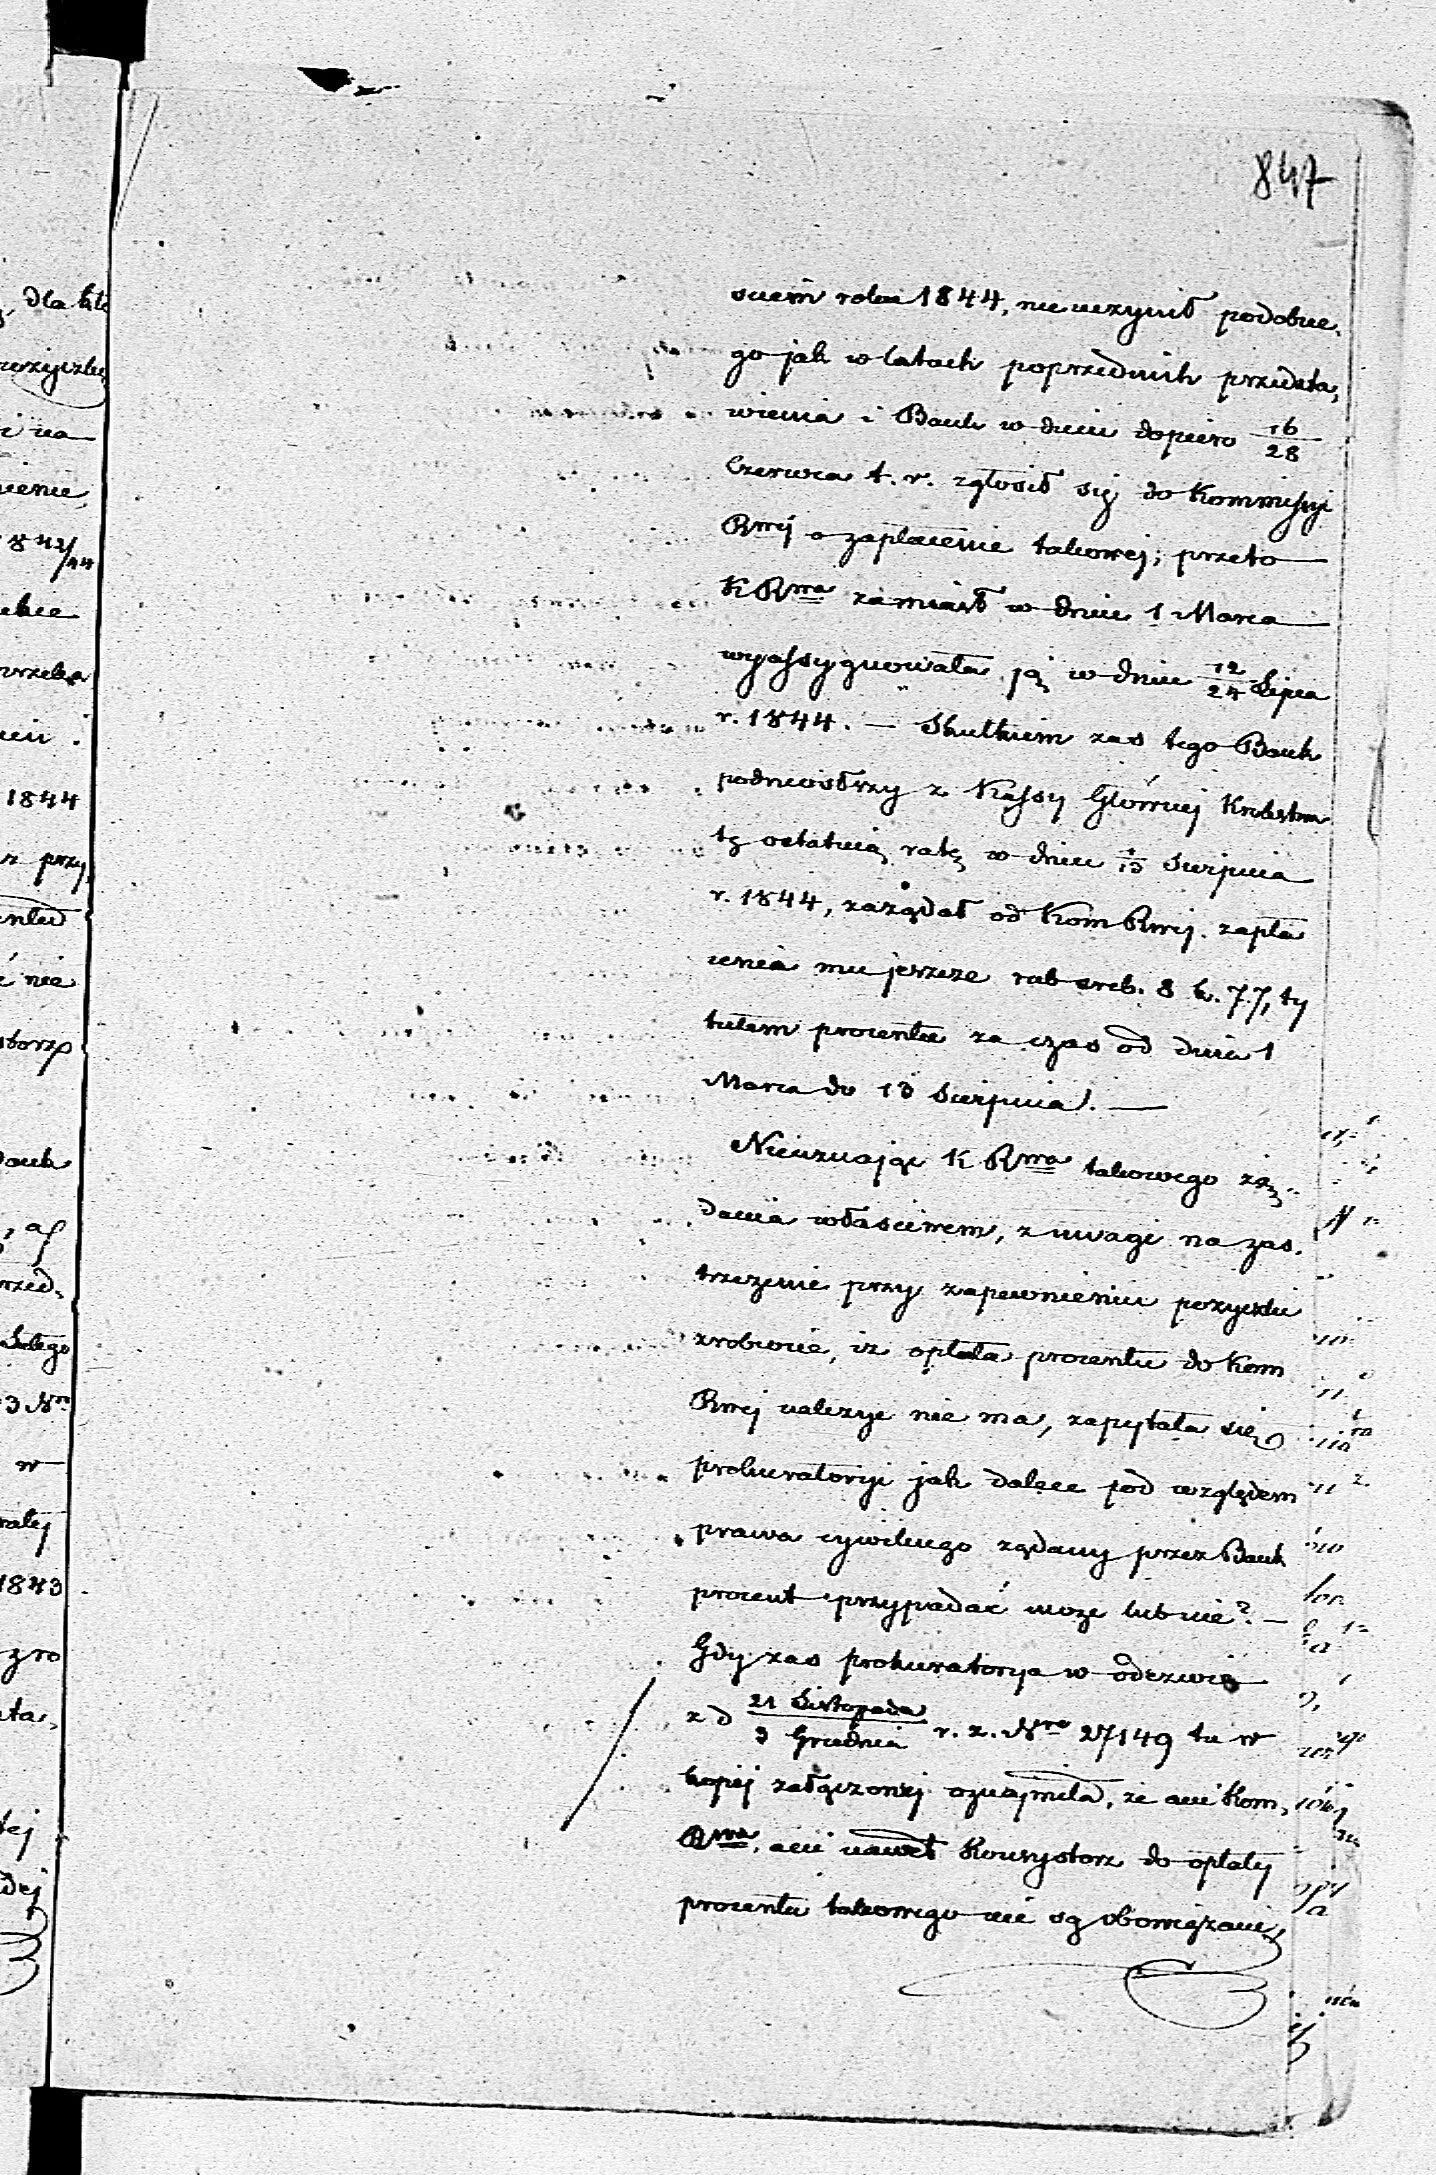 847
sciem roku 1844, nie uczynił podobne,
go jak w latach poprzednich przedsta,
wienia i Bank w dniu dopiero 16/28
Czerwca t. r. zgłosił się do Kommissyi
Rwej o zapłacenie takowej; przeto
K Rwa zamiast w dniu 1 Marca
wyassygnowała ją w dniu 12/24 Lipca
r. 1844. — Skutkiem zas tego Bank
podniosłszy z Kassy Głównej Królestwa
tę ostatnią ratę w dniu 1/13 Sierpnia
r. 1844, zażądał od Kom Rwej. zapła
cenia mu jeszcze rub sreb. 8 k. 77, ty
tułem procentu za czas od dnia 1
Marca do 13 Sierpnia. —
Nieuznając K Rwa takowego żą,
dania właściwem, z uwagi na zas,
trzeżenie przy zapewnieniu pożyczki
zrobione, iż opłata procentu do Kom
Rwej należyć nie ma, zapytała się
prokuratoryi jak dalece pod względem
prawa cywilnego żądany przez Bank
procent przypadać może lub nie? —
Gdy zas prokuratorya w odezwie
z d 21 Listopada/3 Grudnia r. z. Nro 27149 tu w
kopij załączonej oznajmiła, że ani Kom,
Rwa, ani nawet Konsystorz do opłaty
procentu takowego nie są obowiązani,